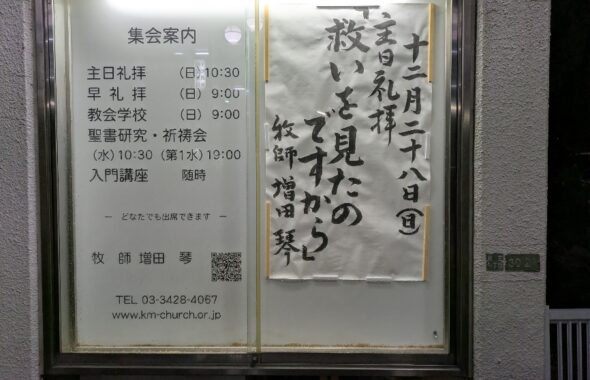 集会案内
主日礼拝 (日) 10:30
早 礼 拝 (日) 9:00
教会学校 (日) 9:00
聖書研究・祈祷会
(水) 10:30 (第1水) 19:00
入門講座 随時
― どなたでも出席できます ―
牧 師 増田 琴
TEL 03-3428-4067
www.km-church.or.jp
十二月二十八日(日)
主日礼拝
「救いを見たの
ですから」
牧師 増田 琴